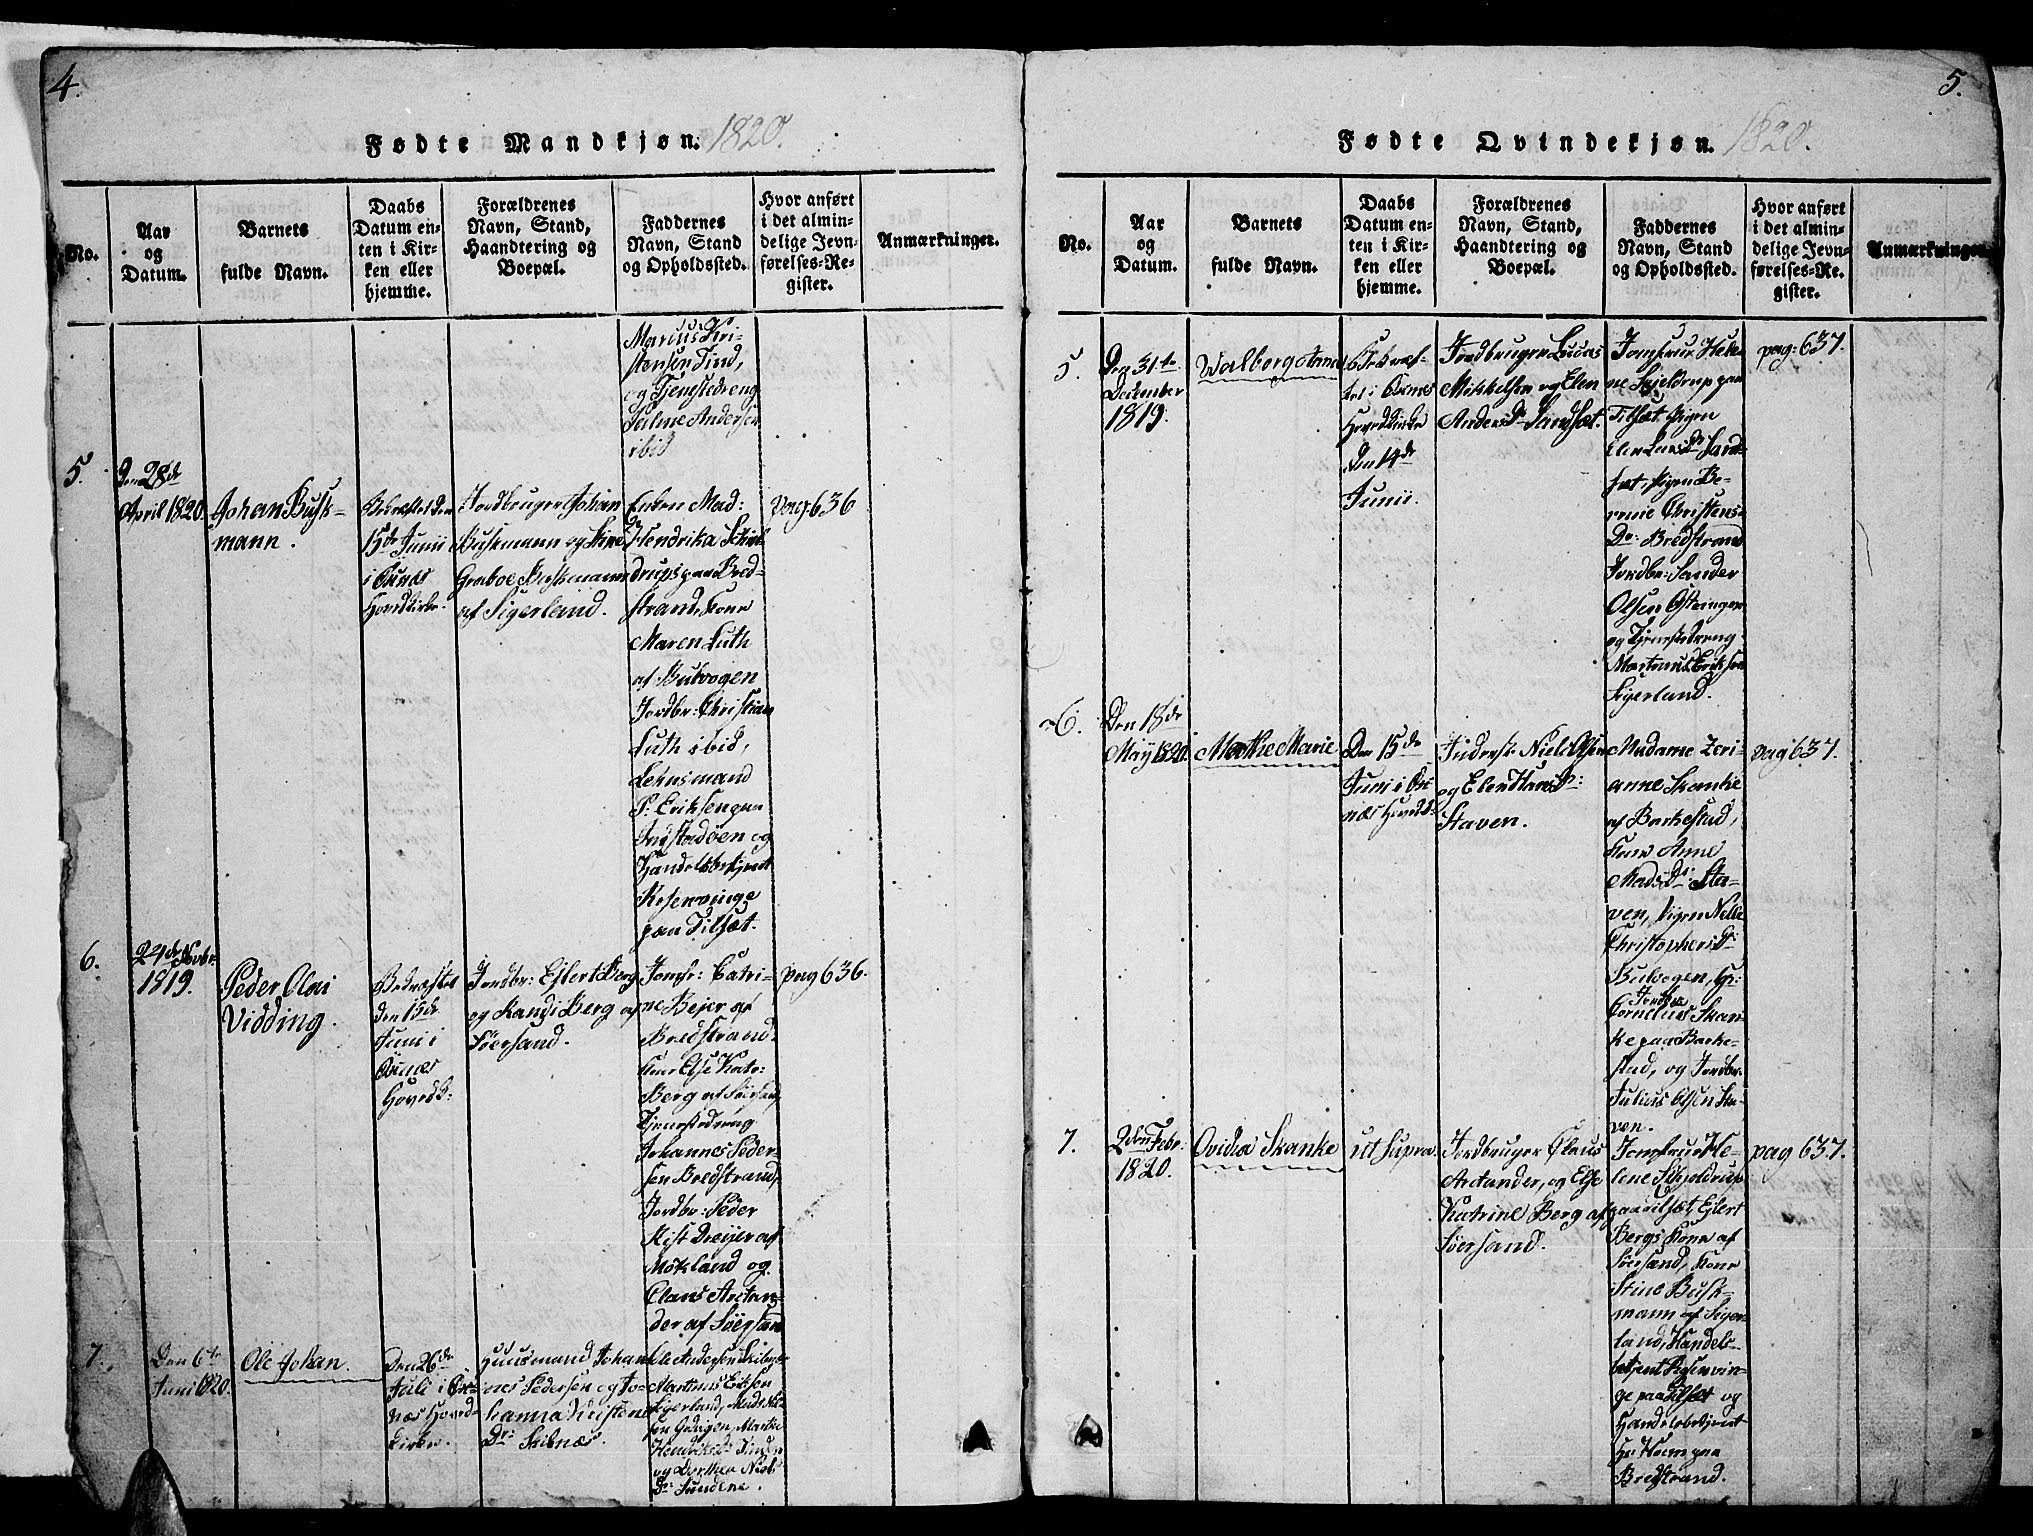 4.
Fødte Mandkjøn. 1820.
No.
Aar
og
Datum.
Barnets
fulde Navn.
Daabs
Datum en-
ten i Kir-
ken eller
hjemme.
Forældrenes
Navn, Stand,
Haandtering og
Boepæl.
Faddernes
Navn, Stand
og Opholdssted.
Hvor anført
i det almin-
delige Jevn-
førelses-Re-
gister.
Anmærkninger.
Marius Kri-
stensen Tind,
og Tjenestedreng
Andersen
ibid
5.
Den 28de
April 1820
Johan Busk-
mann.
Bekræftet den
15de Junii
i Øxnæs
Hovedkirke.
Jordbruger Johan
Buskmann og Stine
Graboe Buskmann
af Sigerland.
Enken Mad:
Hendrika Schiel-
drups paa Bred-
strand, Kone
Maren Luth
af Bulvogen
Jordbr: Christian
Luth ibid,
Lehnsmand
P: Eriksen paa
og
Handelsbetjent
Rosenvinge
paa Tilsæt.
pag: 636
6.
24de Novbr.
1819.
Peder Olai
Vidding.
Bekræftet
den 15de
Juni i
Øxnæs
Hovedk:
Jordbr: Ejlert Berg
og Randi Berg af
Söersand.
Jomfr: Catri-
ne Bejer af
Bredstrand.
Kone Else Katr:
Berg af Söersand,
Tjenestedreng
Johannes Peder-
sen Bredstrand,
Jordbr: Peder
Kist Dreijer af
Mökland og
Claus Arctan-
der af Söersand
pag 636.
7.
Den 6te
Juni 1820.
Ole Johan.
Den 26de
Juli i Øx-
næs Hoved-
kirke.
Huusmand Johan-
nes Pedersen og Jo-
hanna Kristens
Dr: Skibnæs.
Ole Andersen
Martinus Eriksen
Sigerland, Mads
Marthe
Hendriksdr
og Dorthea Niels
Dr: Sundene.
5.
Fødte Qvindekjøn. 1820.
No.
Aar
og
Datum.
Barnets
fulde Navn.
Daabs
Datum en-
ten i Kir-
ken eller
hjemme.
Forældrenes
Navn, Stand,
Haandtering og
Boepæl.
Faddernes
Navn, Stand
og Opholdssted.
Hvor anført
i det almin-
delige Jevn-
førelses-Re-
gister.
Anmærkninger.
5.
Den 31te
December
1819.
Walborg Anna
Bekræf-
tet i Øxnæs
Hovedkirke
Den 14de
Junii.
Jordbruger Lucas
Mikkelsen og Elen
Anders Dr Sandsæt.
Jomfrue Hele-
ne Skjeldrup paa
Tilsæt, Pigen
Sand-
sæt, Pigen Be-
Christens-
Dr: Bredstrand
Jordbr: Sander
Olsen
og Tjenestedreng
Martinus Eriksen
Sigerland.
pag: 637.
6.
Den 18de
Maij 1820.
Marthe Marie
Den 15de
Juni i Øx-
næs Hovedk:
Inderst: Niels Olsen
og Elen Hans Dr:
Staven.
Madame Zeri-
anne Skanke
af Barkestad,
Kone Anne
Mads Dr: Sta-
ven, Pigen Nille
Christophers Dr:
Bulvogen,
Jordbr
Cornelius Skan-
ke paa Barke-
stad, og Jordbr:
Julius Olsen Sta-
ven.
pag 637.
7.
2den Febr:
1820.
Ovidia Skanke
ut supra.
Jordbruger Claus
Arctander, og Else
Katrine Berg af
Söersand.
Jomfrue He-
lene Skjeldrup
paa Tilsæt, Ejlert
Bergs Kone af
Söersand, Kone
Stine Busk-
mann af Siger-
land, Handels-
betjent Rosenvin-
ge paa Tilsæt og
Handelsbetjent
Hr: Holm paa
Bredstrand.
pag 637.